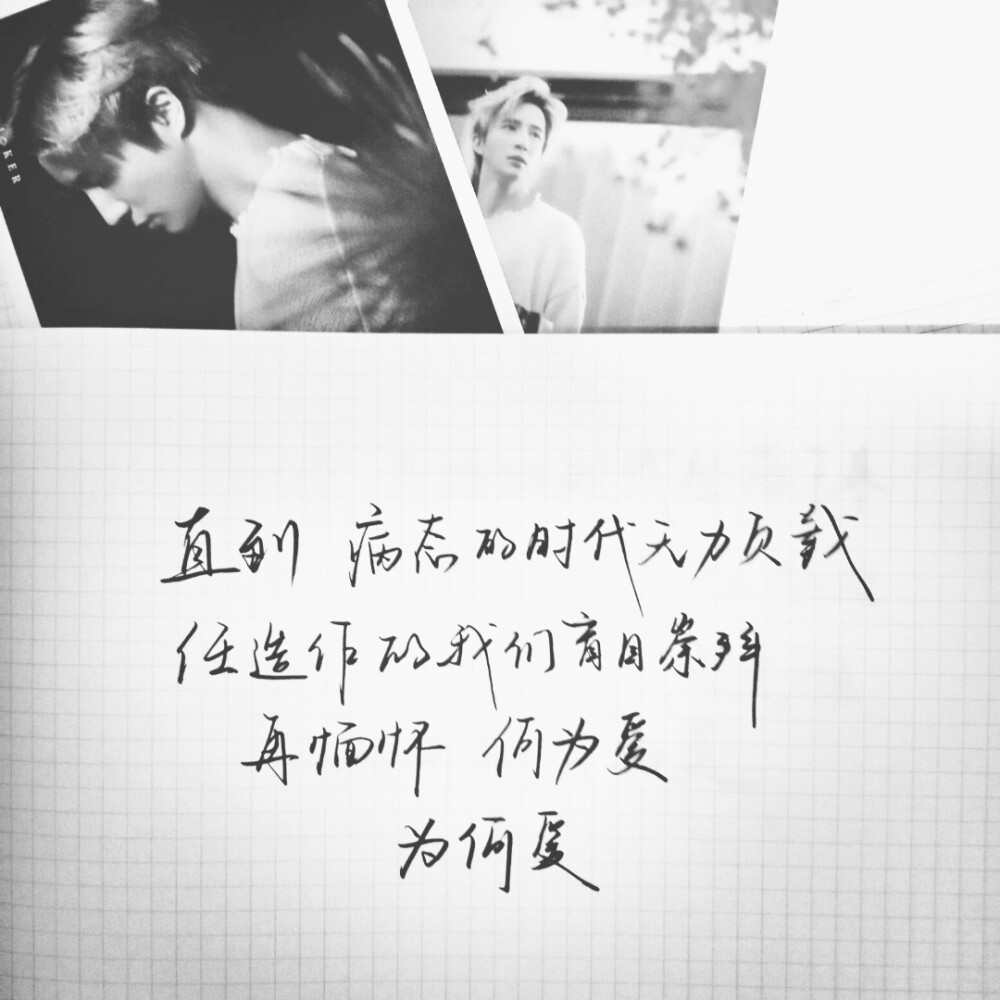 OKER
直到 病态的时代无力负载
任造作的我们盲目崇拜
再缅怀 何为爱
为何爱